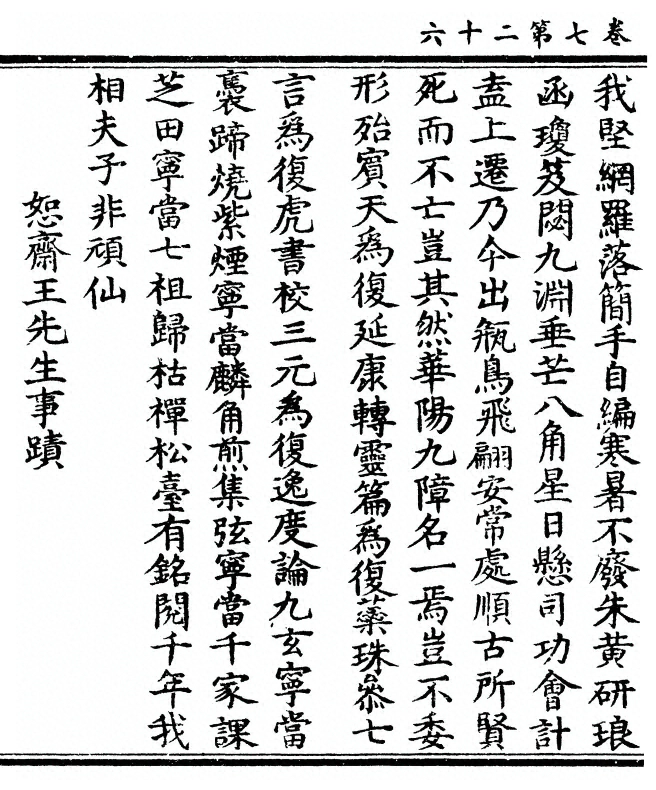 卷七第二十六
我堅網羅落簡手自編寒暑不廢朱黃研琅
函瓊芨閟九淵垂芒八角星日懸司功會計
盍上遷乃今出瓴鳥飛翩安常處順古所賢
死而不亡豈其然華陽九障名一焉豈不委
形殆賓天為復延康轉靈篇為復蘂珠叅七
言為復虎書校三元為復逸度論九玄寧當
褭蹄燒紫煙寧當麟角煎集弦寧當千家課
芝田寧當七祖歸枯禪松臺有銘閱千年我
相夫子非頑仙
恕齋王先生事蹟